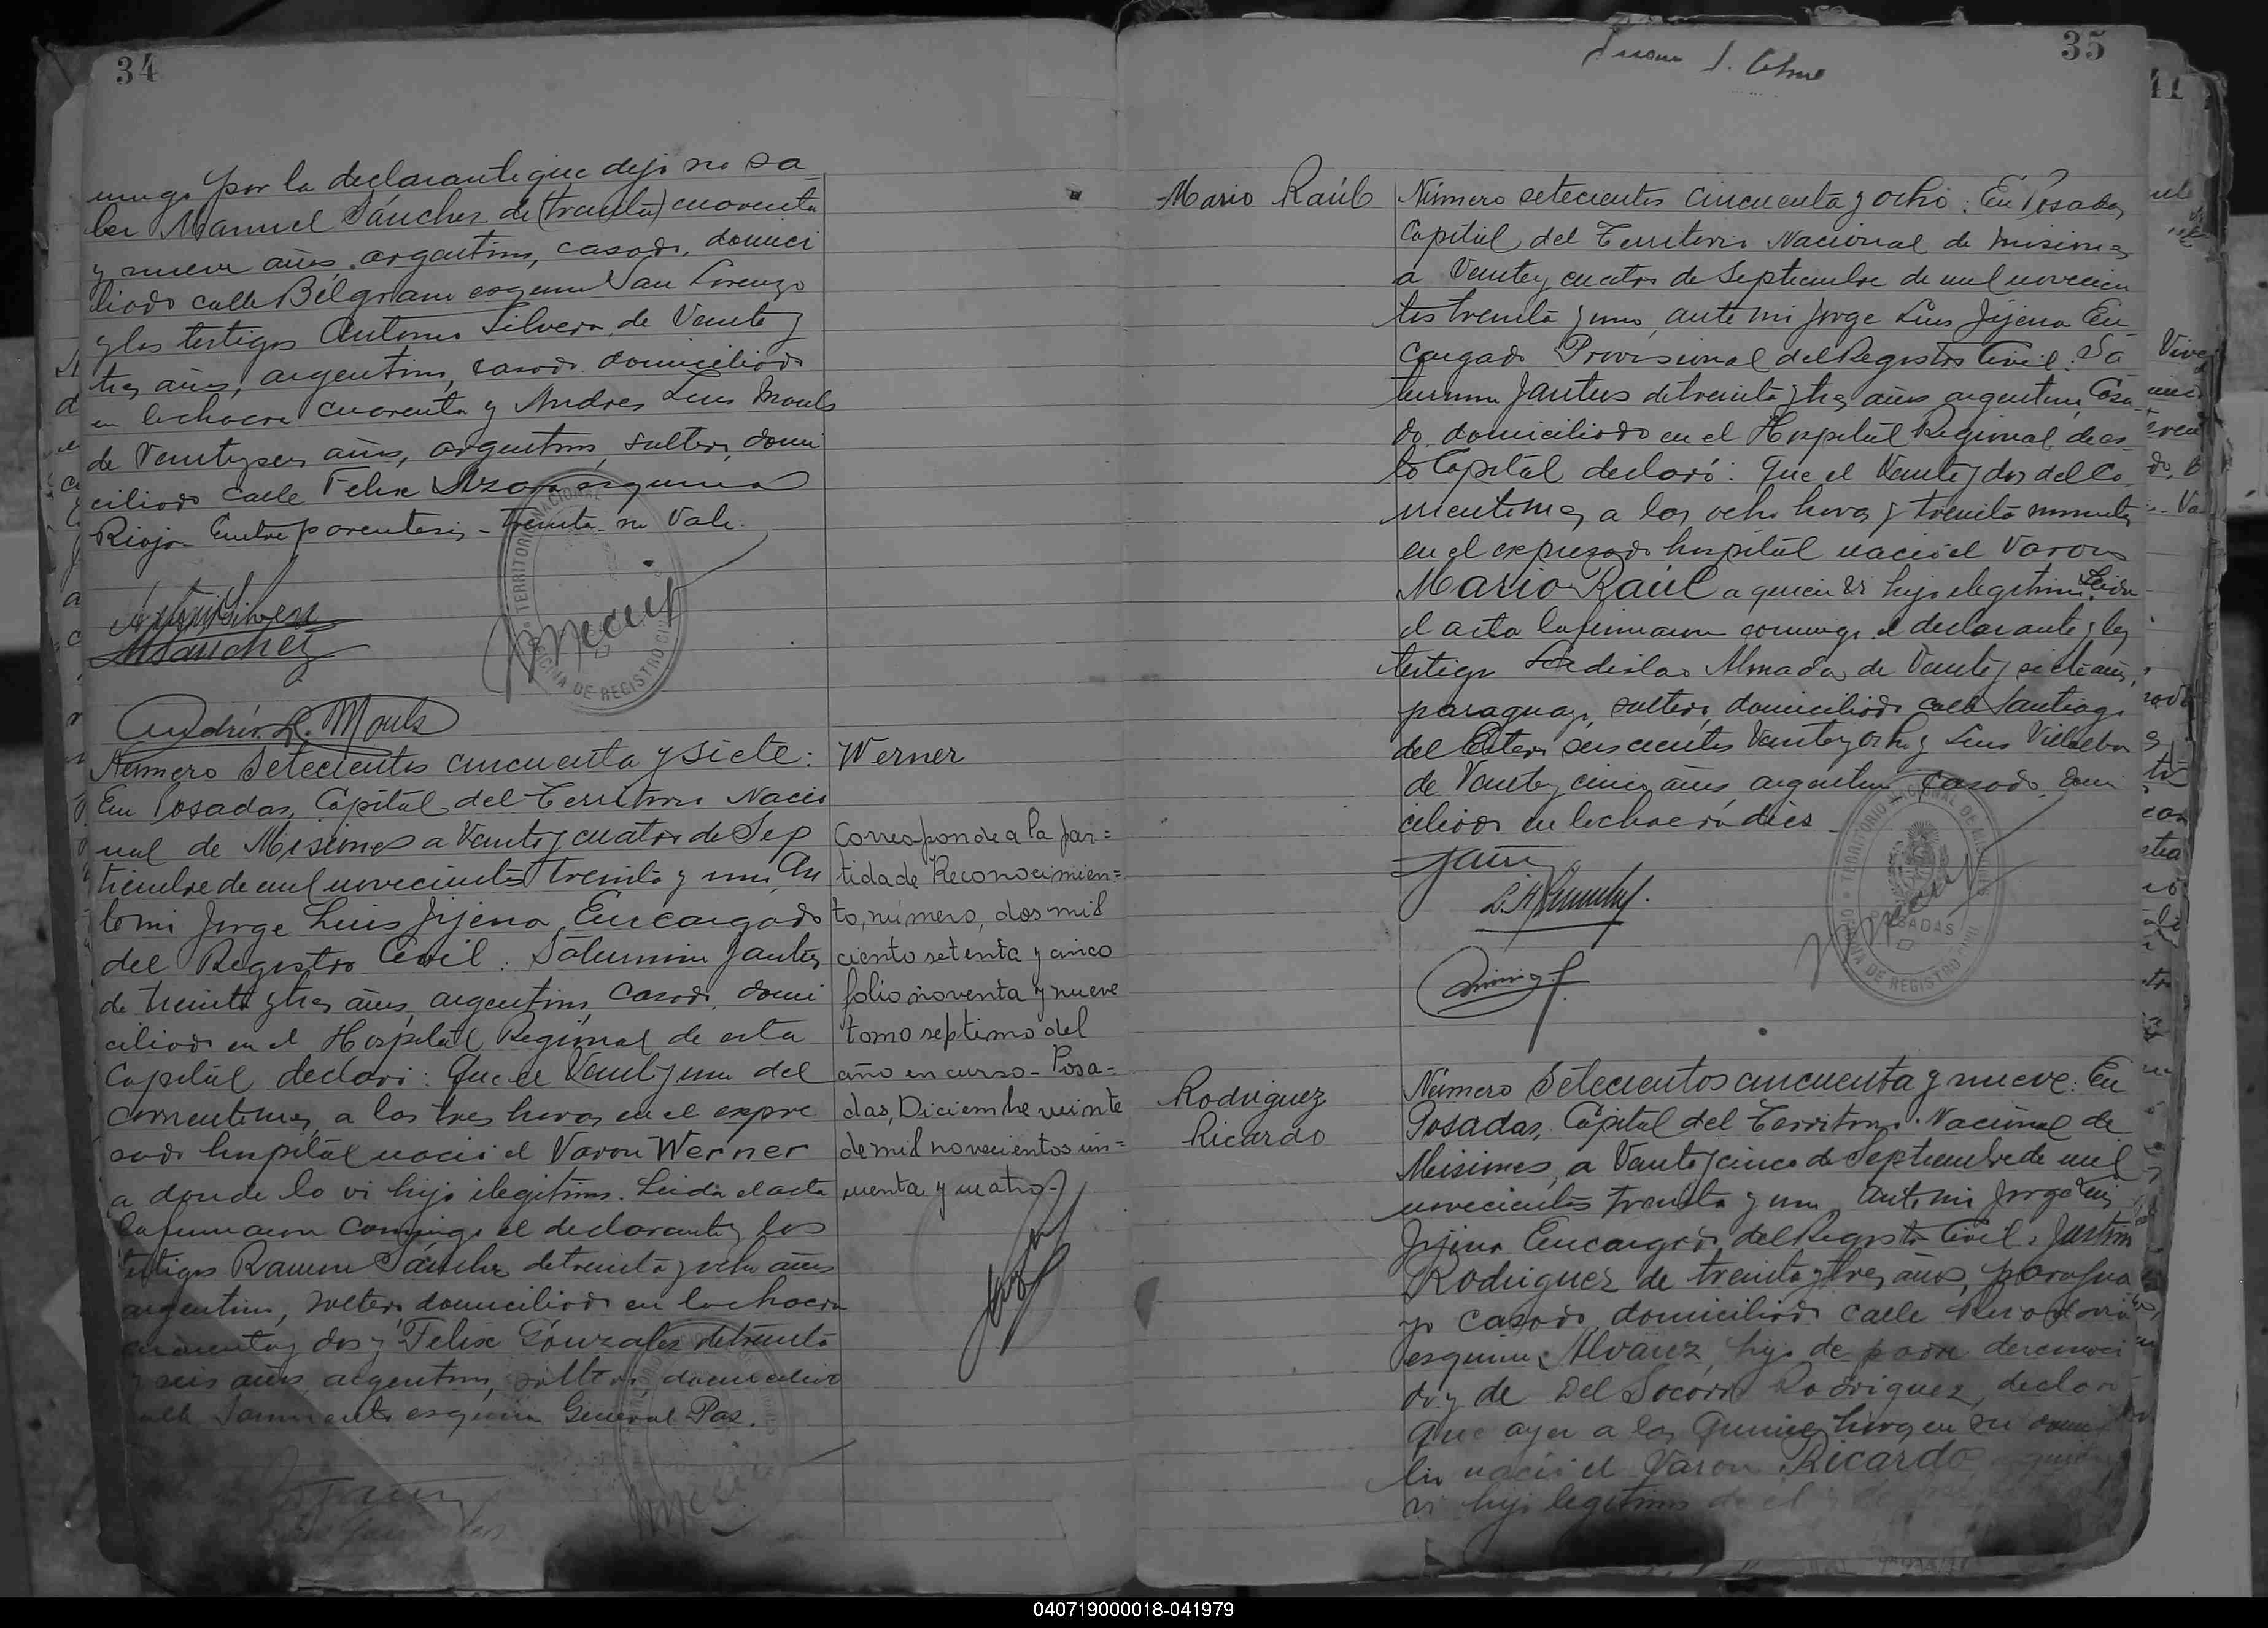 34
migo por la declarante que dijo no sa
ber Manuel Sánchez de (treinta) cuarenta
y nueve años, argentino, casado, domici
liado calle Belgrano esquina San Lorenzo
y los testigos Antonio Silvera de Veinte y
tres años, argentino, casado domiciliado
en la chacra cuarenta y Andres Luis Mouls
de Veintiseis años, argentino, soltero, domi
ciliado calle Felix Azara esquina
Rioja - Entre parentesis - treinta - no Vale.
TERRITORIO NACIONAL
OFICINA DE REGISTRO CIVIL
Antonio Silvera
MSanchez
Andrés L. Mouls
Número Setecientos cincuenta y siete:
En Posadas, Capital del Territorio Nacio
nal de Misiones a Veinte y cuatro de Sep
tiembre de mil novecientos treinta y uno, An
te mi Jorge Luis Jijena Encargado
del Registro Civil: Saturnino Jantus
de treinta y tres años, argentino, casado, domi
ciliado en el Hospital Regional de esta
Capital declaró: Que el Veint y uno del
corriente mes, a las tres horas en el expre
sado hospital nació el Varon Werner
a donde lo vi hijo ilegitimo. Leida el acta
la firmaron conmigo el declarante y los
testigos Ramon Sánchez de treinta y ocho años
argentino, soltero, domiciliado en la chacra
cincuenta y dos y Felix Gonzales de treinta
y seis años, argentino, soltero, domiciliado
calle Sarmiento esquina General Paz.
Werner
Corresponde a la par=
tida de Reconocimien=
to, número, dos mil
ciento setenta y cinco
folio noventa y nueve
tomo septimo del
año en curso - Posa=
das, Diciembre veinte
de mil novecientos cin=
cuenta y cuatro-
35
Mario Raúl
Número setecientos cincuenta y ocho: En Posadas
Capital del Territorio Nacional de Misiones
a Veinte y cuatro de Septiembre de mil novecien
tos treinta y uno, ante mi Jorge Luis Jijena En
cargado Provisional del Registro Civil: Sa
turnino Jantus de treinta y tres años argentino, Casa
do, domiciliado en el Hospital Regional de es
ta Capital declaró: Que el Veinte y dos del Co
rriente mes, a las ocho horas y treinta minutos
en el expresado hospital nació el Varon
Mario Raúl a quien vi hijo ilegitimo. Leida
el acta la firmaron conmigo el declarante y los
testigos Ladislao Almada, de Veinte y siete años,
paraguayo, soltero, domiciliado calle Santiago
del Estero seiscientos Veinte y ocho y Luis Villalba
de Veinte y cinco años argentino casado, domi
ciliado en la chacra diez
TERRITORIO NACIONAL DE MISIONES
POSADAS
OFICINA DE REGISTRO CIVIL
Rodriguez
Ricardo
Número Setecientos cincuenta y nueve: En
Posadas, Capital del Territorio Nacional de
Misiones, a Veinte y cinco de Septiembre de mil
novecientos treinta y uno, Ante mi Jorge Luis
Jijena Encargado del Registro Civil: Justino
Rodriguez de treinta y tres años, paragua
yo casado domiciliado calle Rivadavia
esquina Alvarez, hijo de padre desconoci
do y de Del Socorro Rodriguez, declaró
Que ayer a las quince horas en su domici
lio nació el Varon Ricardo a quien
vi hijo legitimo de el
040719000018-041979